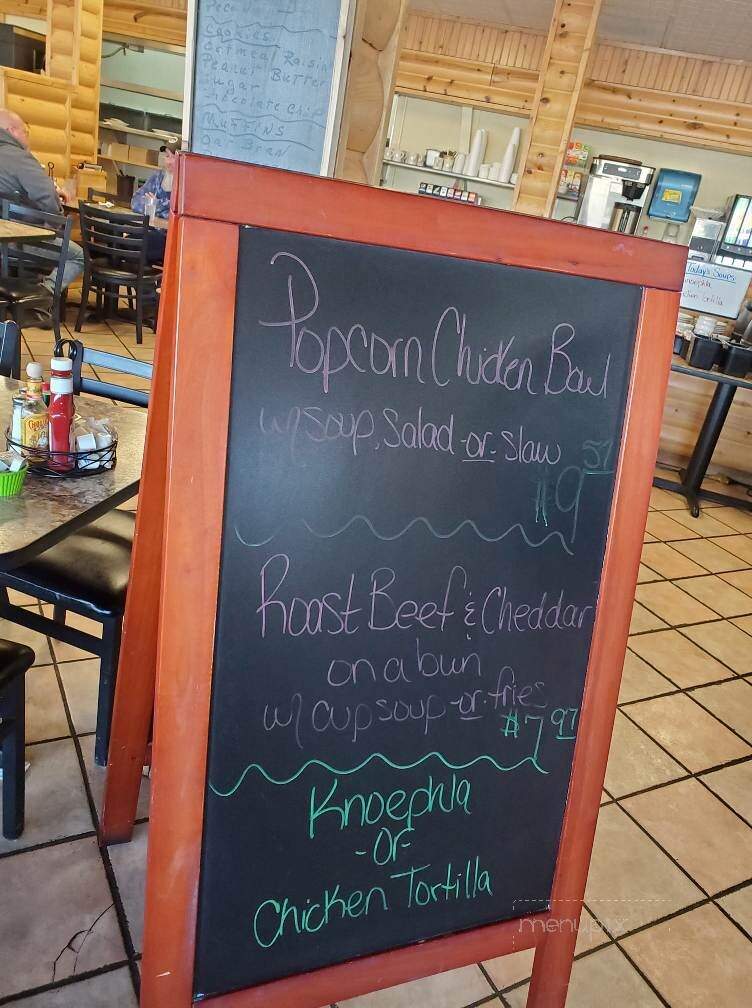 Cookies
Oatmeal Raisin
Peanut Butter
Sugar
Chocolate Chip
Muffins
Oat Bran
Today's Soups:
Knoephla
Chicken Tortilla
Popcorn Chicken Bowl
w/ soup, salad -or- slaw
$9 57
Roast Beef & Cheddar
on a bun
w/ cup soup -or- fries
$7 97
Knoephla
-or-
Chicken Tortilla
menupix